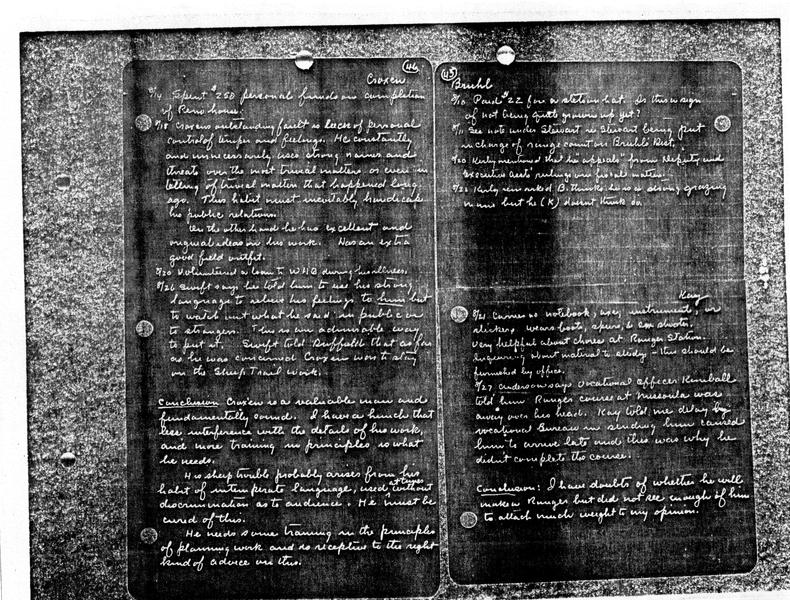 46
Croxen
8/14 Spent $250 personal funds on completion
of Reno house.
8/18 Croxens outstanding fault is lack of personal
control of temper and feelings. He constantly
and unnecessarily uses strong names and
threats over the most trivial matters or even in
telling of trivial matters that happened long
ago. This habit must inevitably handicap
his public relations.
On the other hand he has excellent and
original ideas on his work. Has an extra
good field outfit.
8/20 Volunteered a loan to WHB during his illness.
8/26 Swift says he told him to use his strong
language to relieve his feelings to him but
to watch out what he said in public or
to strangers. This is an admirable way
to put it. Swift told that as far
as he was concerned Croxen was to stay
on the Sheep Trail work.
Conclusion Croxen is a valuable man and
fundamentally sound. I have a hunch that
less interference with the details of his work
and more training in principles is what
he needs.
His sheep trouble probably arises from his
habit of intemperate language, used at times without
discrimination as to audience. He must be
cured of this.
He needs some training in the principles
of planning work and is receptive to the right
kind of advice on this.
45
Bruhl
8/10 Paid $22 for a stetson hat. Is this a sign
of not being quite grown up yet?
8/11 See note under Stewart re Stewart being put
in charge of range count on Bruhl's Dist.
8/20 Kerly mentioned that he "appeals" from Deputy and
Executive Assts' rulings on fiscal matters.
8/22 Kerly remarked B. thinks he is a strong grazing
man but he (K) doesnt think so.
Kay
8/21 Carries no notebook, axe, instruments, or
slicker. Wears boots, spurs, & six shooter.
Very helpful about chores at Ranger Station.
Inquiring about material to study - this should be
furnished by office.
8/27 Anderson says Vocational Officer Kimball
told him Ranger course at Missoula was
away over his head. Kay told me delay by
Vocational Bureau in sending him caused
him to arrive late and this was why he
didn't complete the course.
Conclusion: I have doubts of whether he will
make a Ranger but did not see enough of him
to attach much weight to my opinion.